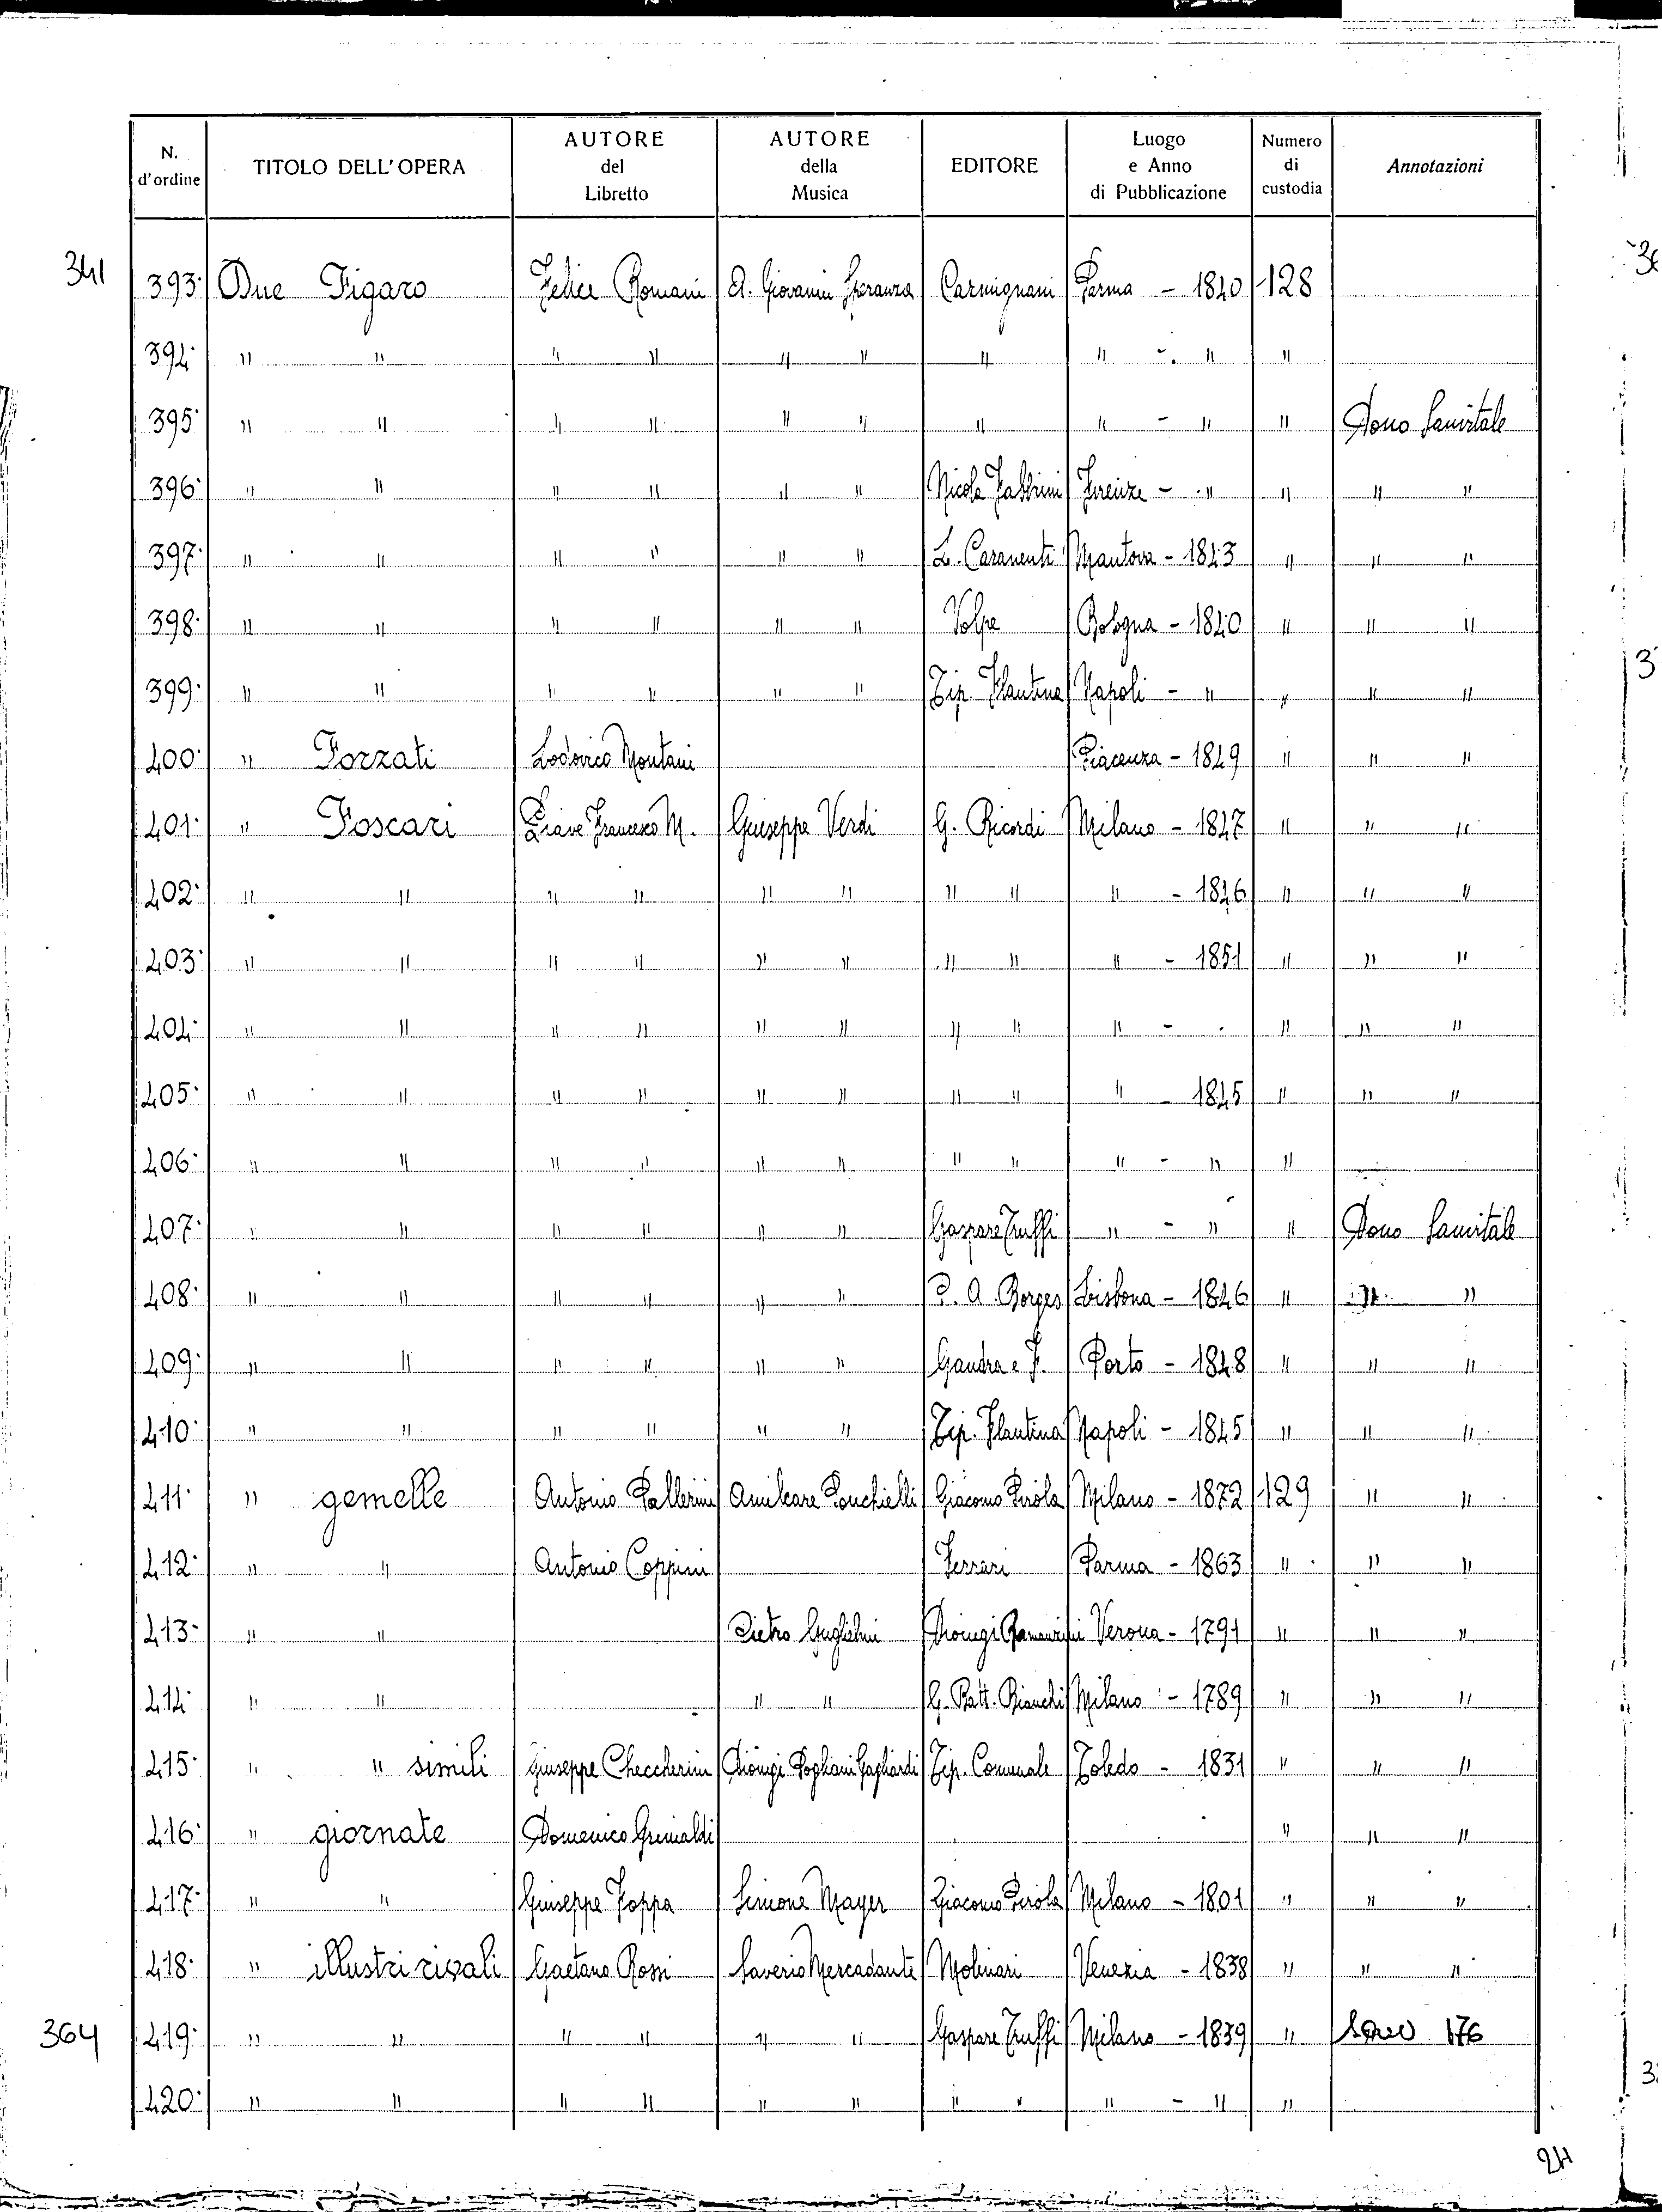 N. d'ordine TITOLO DELL'OPERA AUTORE del Libretto AUTORE della Musica EDITORE Luogo e Anno di Pubblicazione Numero di custodia Annotazioni
341 393 Due Figaro Felice Romani A. Giovanni Speranza Carmignani Parma - 1840 128
394 " " " " " " " " - " "
395 " " " " " " " " - " " Dono Sanvitale
396 " " " " " " Nicola Fabbrini Firenze - " " " "
397 " " " " " " L. Caranenti Mantova - 1843 " " "
398 " " " " " " Volpe Bologna - 1840 " " "
399 " " " " " " Tip. Plautina Napoli - " " " "
400 " Forzati Lodovico Montani Piacenza - 1849 " " "
401 " Foscari Piave Francesco M. Giuseppe Verdi G. Ricordi Milano - 1847 " " "
402 " " " " " " " " " - 1846 " " "
403 " " " " " " " " " - 1851 " " "
404 " " " " " " " " " - " " "
405 " " " " " " " " " 1845 " " "
406 " " " " " " " " " - " "
407 " " " " " " Gaspare Truffi " - " " Dono Sanvitale
408 " " " " " " P. A. Borges Lisbona - 1846 " " "
409 " " " " " " Gandra e F. Porto - 1848 " " "
410 " " " " " " Tip. Plautina Napoli - 1845 " " "
411 " gemelle Antonio Pallerini Amilcare Ponchielli Giacomo Pirola Milano - 1872 129 " "
412 " " Antonio Coppini Ferrari Parma - 1863 " " "
413 " " Pietro Guglielmi Dionigi Ramanzini Verona - 1791 " " "
414 " " " " G. Batt. Bianchi Milano - 1789 " " "
415 " " simili Giuseppe Checcherini Dionigi Pogliani Gagliardi Tip. Comunale Toledo - 1831 " " "
416 " giornate Domenico Grimaldi " " "
417 " " Giuseppe Foppa Simone Mayer Giacomo Pirola Milano - 1801 " " "
418 " illustri rivali Gaetano Rossi Saverio Mercadante Molinari Venezia - 1838 " " "
364 419 " " " " " " Gaspare Truffi Milano - 1839 " 176
420 " " " " " " " " " - " "
24